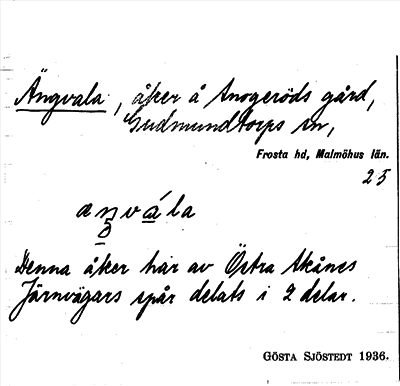 Ängvala, åker å Snogeröds gård,
Gudmundtorps sn,
Frosta hd, Malmöhus län.
25
æŋvála
Denna åker har av Östra Skånes
Järnvägars spår delats i 2 delar.
GÖSTA SJÖSTEDT 1936.